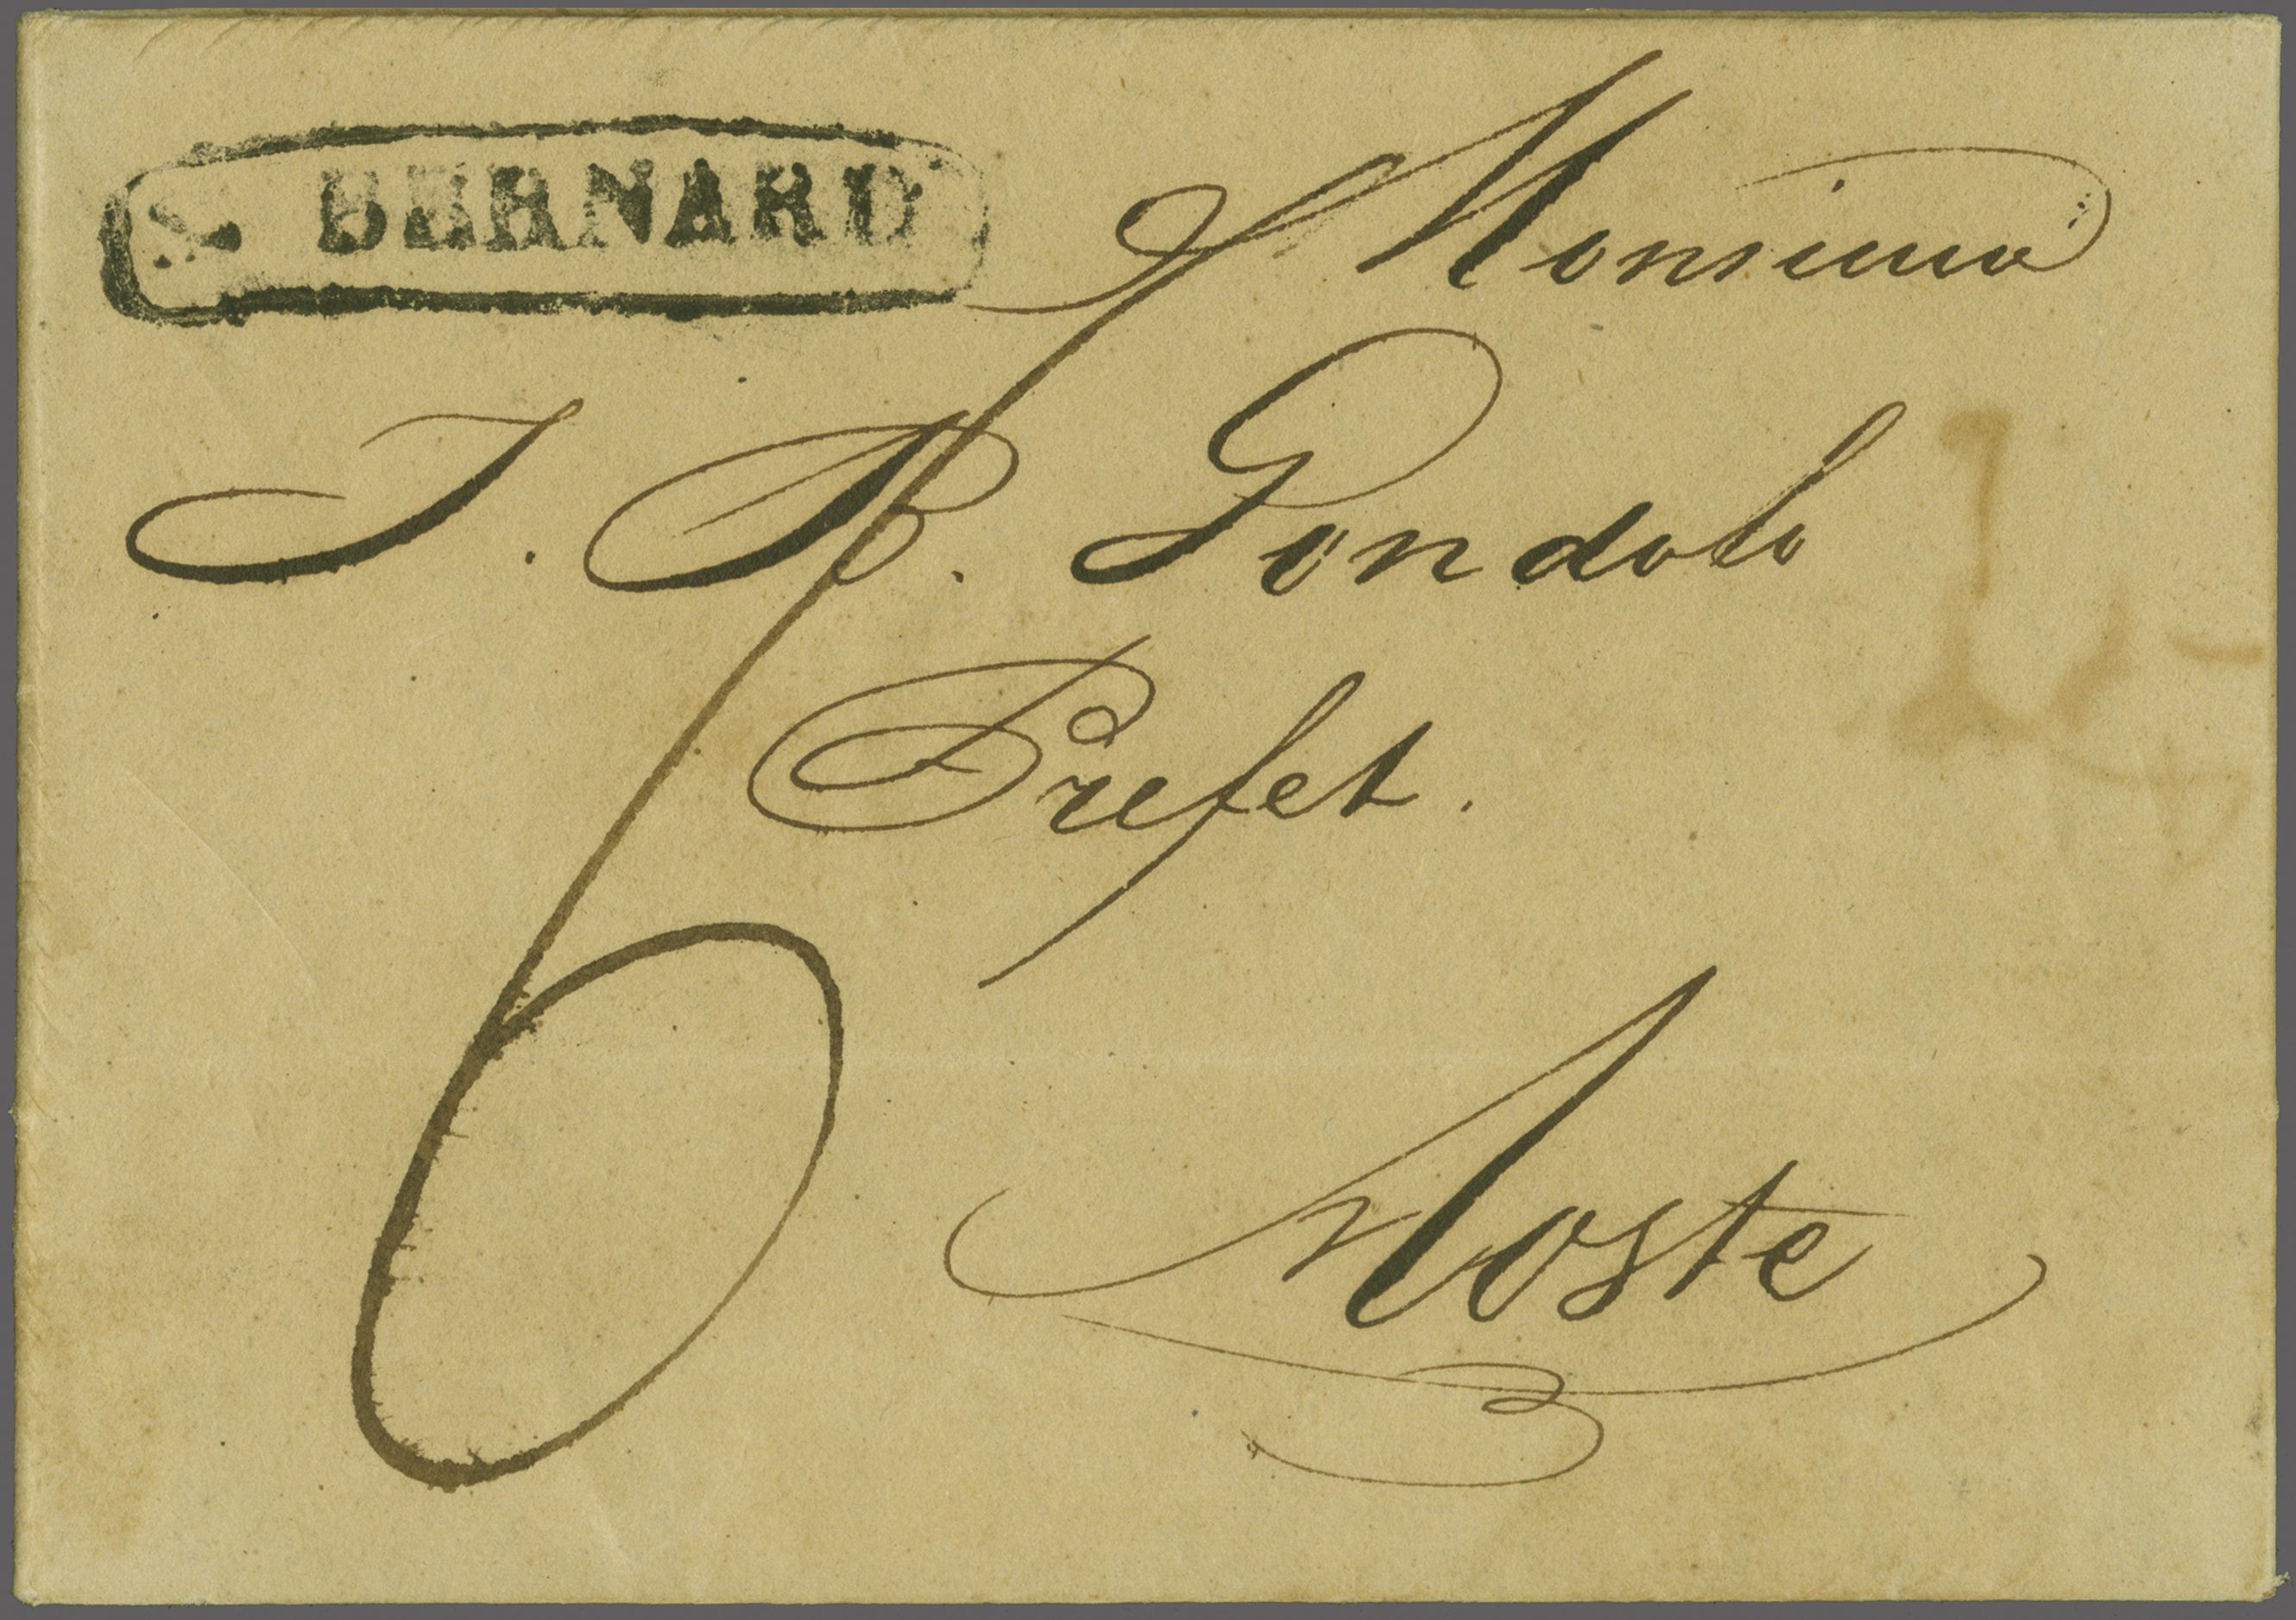 BERNARD
Monsieur
J. B. Gondolo
Préfet.
Aoste
6